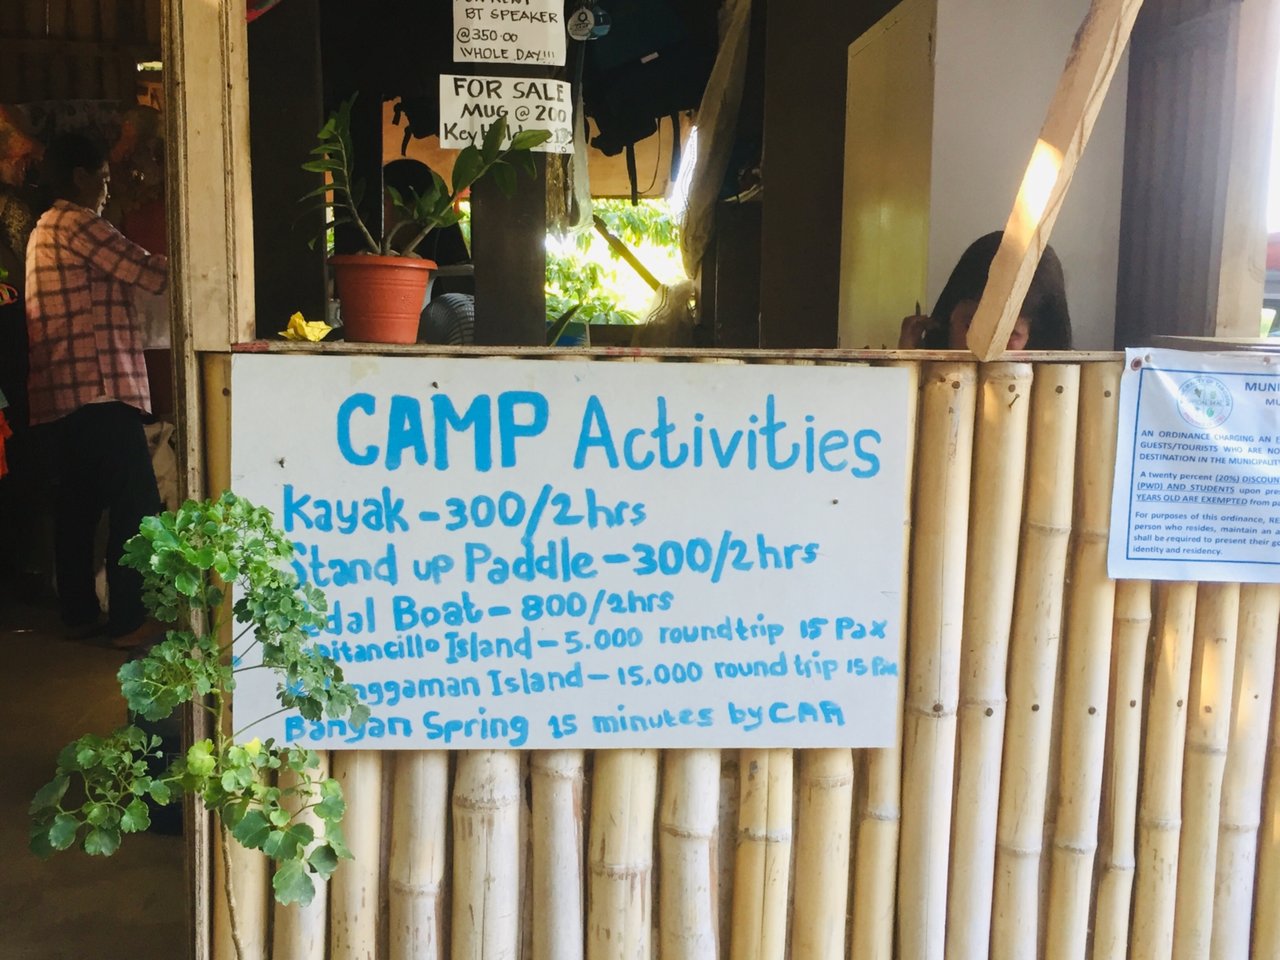 BT SPEAKER
@350.00
WHOLE DAY!!!
FOR SALE
MUG @ 200
CAMP Activities
Kayak - 300/2hrs
Stand up Paddle - 300/2hrs
Boat - 800/2hrs
Island - 5.000 roundtrip 15 Pax
Island - 15,000 round trip 15 Pax
Banyan Spring 15 minutes by CAR
AN ORDINANCE CHARGING AN
GUESTS/TOURISTS WHO ARE
DESTINATION IN THE MUNICIPALITY
A twenty percent (20%)
(PWD) AND STUDENTS upon
YEARS OLD ARE EXEMPTED from
For purposes of this ordinance,
person who resides, maintain an
shall be required to present their
identity and residency.